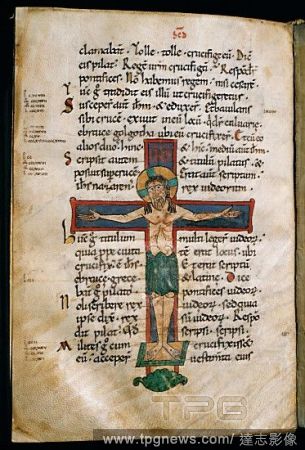 clamabant. Tolle. tolle. crucifige eū. Dic
eis pilat'. Regē urm crucifigā. Respōdr
pontifices. Nō habemus regem. nisi cesarē.
Tūc g tradidit eis illū ut crucifigeretur.
Susceper autē ihm. & eduxer. & baiulans
sibi crucē. exiuit in eū locū. qui dr caluarie.
ebraice golgotha. ubi eū crucifixer. Et cū eo
alios duos hinc & hinc. mediū autē ihm.
Scripsit autem & titulū pilatus. &
posuit sup crucē. Erat autē scriptum.
ihs nazaren' rex iudeorum.
Hūc g titulum multi leger iudeoꝝ.
quia ppe ciuitatē erat locus. ubi
crucifix' ē ihs. Et erat scriptū
ebraice. grece & latine. Dice
bāt g pilato pontifices iudeoꝝ.
Noli scribere rex iudeoꝝ. sed quia
ipse dix. rex sū iudeoꝝ. Respō
dit pilat'. Qd scripsi. scripsi.
Milites g cum crucifixissēt
eū. acceper uestimta eius
TPG
www.tpgnews.com / 達志影像